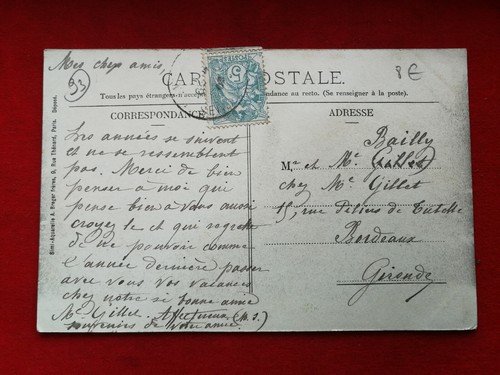 Mes chers amis
93
8€
CARTE POSTALE.
Tous les pays étrangers n'accep
ndance au recto. (Se renseigner à la poste).
CORRESPONDANCE
ADRESSE
Les années se suivent
et ne se ressemblent
pas. Merci de bien
penser à moi qui
pense bien à vous aussi
croyez le et qui regrette
de ne pouvoir comme
l'année dernière passer
avec vous vos vacances
chez notre si bonne amie
Me Gillet. Affectueux
souvenirs de votre amie
Bailly
Mr et Me
chez Me Gillet
15, rue Delurbe de
Bordeaux
Gironde
Simi-Aquarelle A. Breger Frères, 9, Rue Thénard, Paris. Déposé.